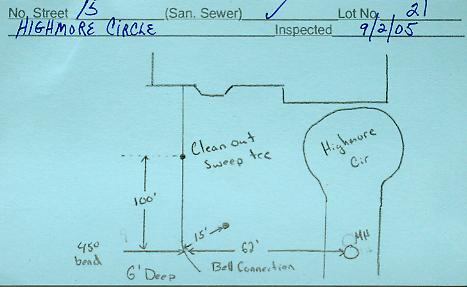 No. Street 15 (San. Sewer) ✓ Lot No. 21
HIGHMORE CIRCLE Inspected 9/2/05
Clean out
Sweep tee
Highmore
Cir
100'
15'
MH
45° 62'
bend
6' Deep Bell Connection